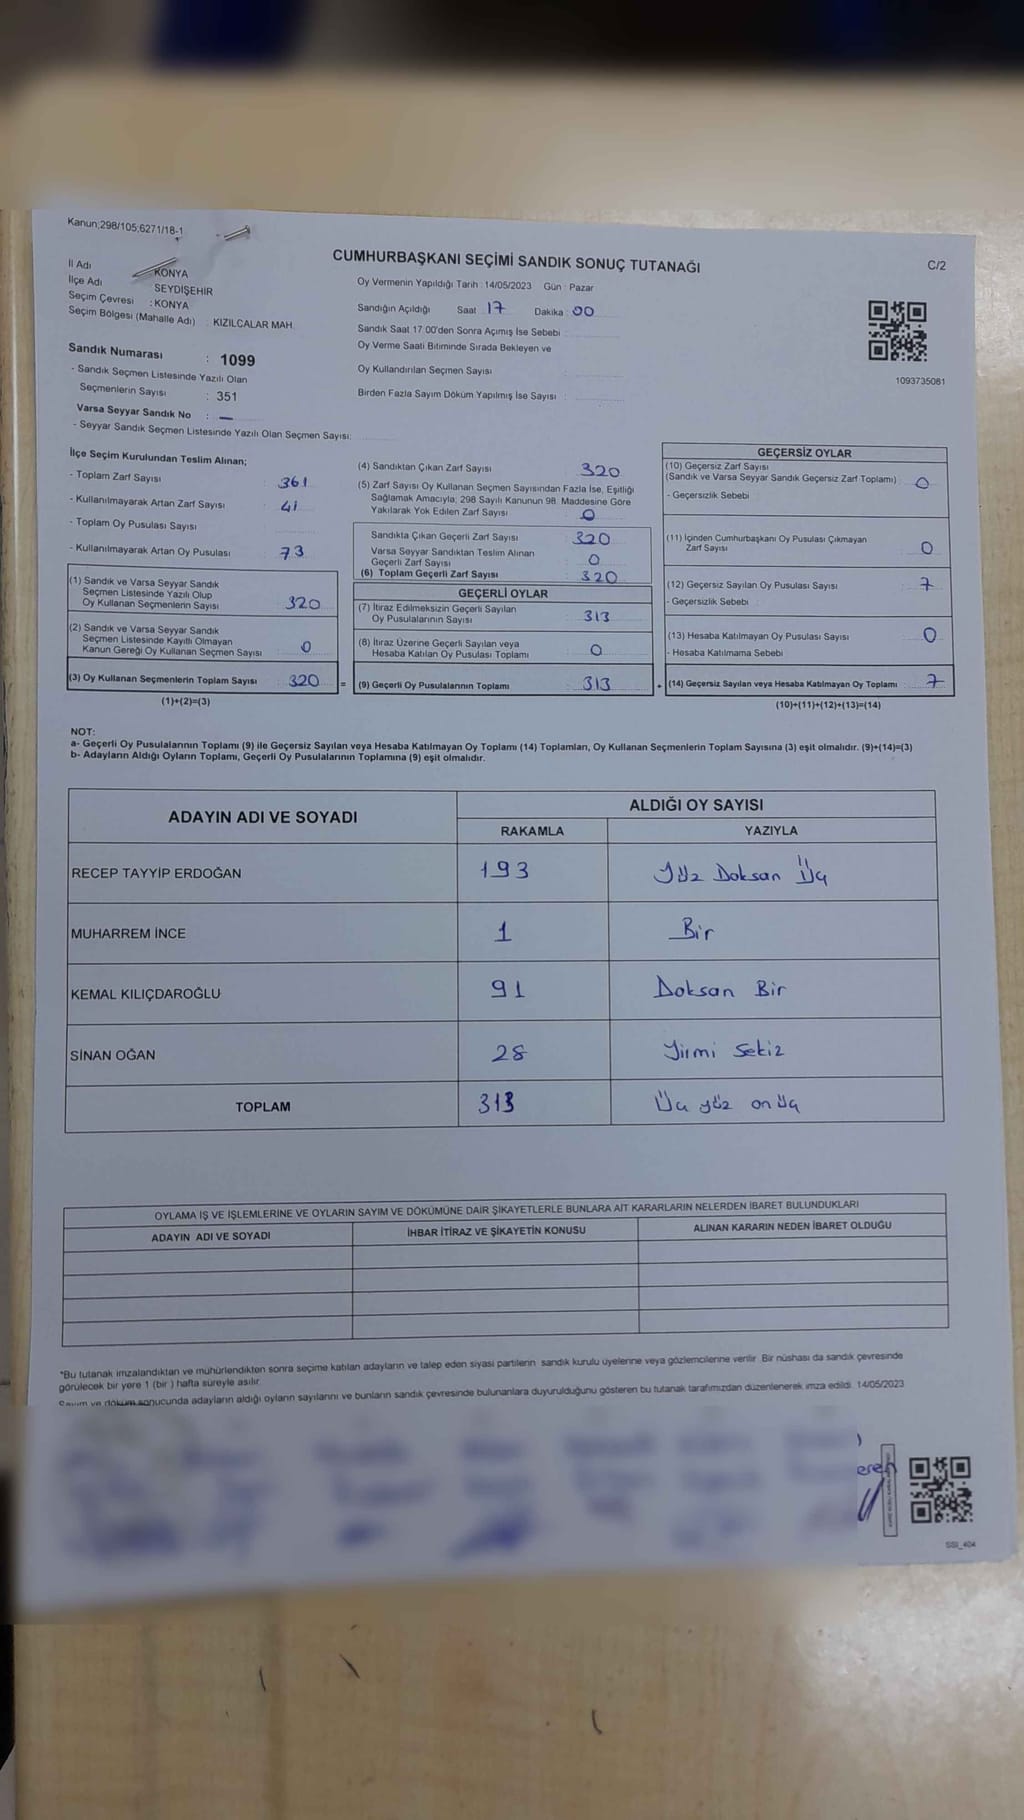 Kanun;298/105;6271/18-1
CUMHURBAŞKANI SEÇİMİ SANDIK SONUÇ TUTANAĞI
C/2
İl Adı KONYA
İlçe Adı SEYDİŞEHİR
Seçim Çevresi : KONYA
Seçim Bölgesi (Mahalle Adı) : KIZILCALAR MAH.
Oy Vermenin Yapıldığı Tarih : 14/05/2023 Gün : Pazar
Sandığın Açıldığı Saat 17 Dakika : 00
Sandık Saat 17.00'den Sonra Açımış İse Sebebi :
Oy Verme Saati Bitiminde Sırada Bekleyen ve
Oy Kullandırılan Seçmen Sayısı :
Birden Fazla Sayım Döküm Yapılmış İse Sayısı :
1093735081
Sandık Numarası : 1099
- Sandık Seçmen Listesinde Yazılı Olan
Seçmenlerin Sayısı : 351
Varsa Seyyar Sandık No : —
- Seyyar Sandık Seçmen Listesinde Yazılı Olan Seçmen Sayısı:
İlçe Seçim Kurulundan Teslim Alınan;
- Toplam Zarf Sayısı : 361
- Kullanılmayarak Artan Zarf Sayısı : 41
- Toplam Oy Pusulası Sayısı :
- Kullanılmayarak Artan Oy Pusulası : 73
(1) Sandık ve Varsa Seyyar Sandık
Seçmen Listesinde Yazılı Olup
Oy Kullanan Seçmenlerin Sayısı : 320
(2) Sandık ve Varsa Seyyar Sandık
Seçmen Listesinde Kayıtlı Olmayan
Kanun Gereği Oy Kullanan Seçmen Sayısı : 0
(3) Oy Kullanan Seçmenlerin Toplam Sayısı : 320 =
(1)+(2)=(3)
(4) Sandıktan Çıkan Zarf Sayısı : 320
(5) Zarf Sayısı Oy Kullanan Seçmen Sayısından Fazla İse, Eşitliği
Sağlamak Amacıyla; 298 Sayılı Kanunun 98. Maddesine Göre
Yakılarak Yok Edilen Zarf Sayısı : 0
Sandıkta Çıkan Geçerli Zarf Sayısı : 320
Varsa Seyyar Sandıktan Teslim Alınan
Geçerli Zarf Sayısı : 0
(6) Toplam Geçerli Zarf Sayısı : 320
GEÇERLİ OYLAR
(7) İtiraz Edilmeksizin Geçerli Sayılan
Oy Pusulalarının Sayısı : 313
(8) İtiraz Üzerine Geçerli Sayılan veya
Hesaba Katılan Oy Pusulası Toplamı : 0
(9) Geçerli Oy Pusulalarının Toplamı : 313 +
GEÇERSİZ OYLAR
(10) Geçersiz Zarf Sayısı
(Sandık ve Varsa Seyyar Sandık Geçersiz Zarf Toplamı) : 0
- Geçersizlik Sebebi :
(11) İçinden Cumhurbaşkanı Oy Pusulası Çıkmayan
Zarf Sayısı : 0
(12) Geçersiz Sayılan Oy Pusulası Sayısı : 7
- Geçersizlik Sebebi :
(13) Hesaba Katılmayan Oy Pusulası Sayısı : 0
- Hesaba Katılmama Sebebi :
(14) Geçersiz Sayılan veya Hesaba Katılmayan Oy Toplamı : 7
(10)+(11)+(12)+(13)=(14)
NOT:
a- Geçerli Oy Pusulalarının Toplamı (9) ile Geçersiz Sayılan veya Hesaba Katılmayan Oy Toplamı (14) Toplamları, Oy Kullanan Seçmenlerin Toplam Sayısına (3) eşit olmalıdır. (9)+(14)=(3)
b- Adayların Aldığı Oyların Toplamı, Geçerli Oy Pusulalarının Toplamına (9) eşit olmalıdır.
ADAYIN ADI VE SOYADI ALDIĞI OY SAYISI
RAKAMLA YAZIYLA
RECEP TAYYİP ERDOĞAN 193 Yüz Doksan Üç
MUHARREM İNCE 1 Bir
KEMAL KILIÇDAROĞLU 91 Doksan Bir
SİNAN OĞAN 28 Yirmi Sekiz
TOPLAM 313 Üç yüz on üç
OYLAMA İŞ VE İŞLEMLERİNE VE OYLARIN SAYIM VE DÖKÜMÜNE DAİR ŞİKAYETLERLE BUNLARA AİT KARARLARIN NELERDEN İBARET BULUNDUKLARI
ADAYIN ADI VE SOYADI İHBAR İTİRAZ VE ŞİKAYETİN KONUSU ALINAN KARARIN NEDEN İBARET OLDUĞU
*Bu tutanak imzalandıktan ve mühürlendikten sonra seçime katılan adayların ve talep eden siyasi partilerin sandık kurulu üyelerine veya gözlemcilerine verilir. Bir nüshası da sandık çevresinde
görülecek bir yere 1 (bir ) hafta süreyle asılır.
Sayım ve döküm sonucunda adayların aldığı oyların sayılarını ve bunların sandık çevresinde bulunanlara duyurulduğunu gösteren bu tutanak tarafımızdan düzenlenerek imza edildi. 14/05/2023
eren
SSI_404